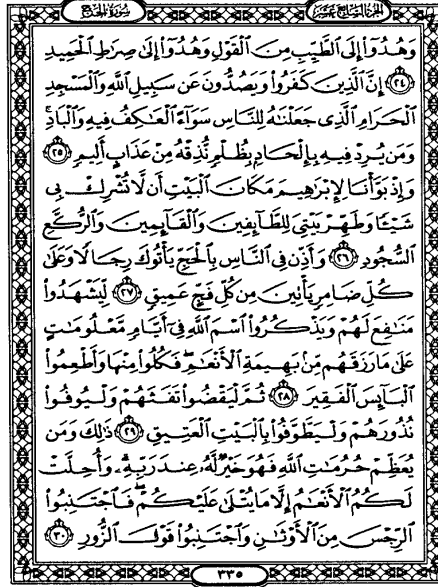 الجزء السابع عشر
سورة الحج
وَهُدُوٓاْ إِلَى ٱلطَّيِّبِ مِنَ ٱلۡقَوۡلِ وَهُدُوٓاْ إِلَىٰ صِرَٰطِ ٱلۡحَمِيدِ
٢٤ إِنَّ ٱلَّذِينَ كَفَرُواْ وَيَصُدُّونَ عَن سَبِيلِ ٱللَّهِ وَٱلۡمَسۡجِدِ
ٱلۡحَرَامِ ٱلَّذِي جَعَلۡنَٰهُ لِلنَّاسِ سَوَآءً ٱلۡعَٰكِفُ فِيهِ وَٱلۡبَادِۚ
وَمَن يُرِدۡ فِيهِ بِإِلۡحَادِۭ بِظُلۡمٖ نُّذِقۡهُ مِنۡ عَذَابٍ أَلِيمٖ ٢٥
وَإِذۡ بَوَّأۡنَا لِإِبۡرَٰهِيمَ مَكَانَ ٱلۡبَيۡتِ أَن لَّا تُشۡرِكۡ بِي
شَيۡـٔٗا وَطَهِّرۡ بَيۡتِيَ لِلطَّآئِفِينَ وَٱلۡقَآئِمِينَ وَٱلرُّكَّعِ
ٱلسُّجُودِ ٢٦ وَأَذِّن فِي ٱلنَّاسِ بِٱلۡحَجِّ يَأۡتُوكَ رِجَالٗا وَعَلَىٰ
كُلِّ ضَامِرٖ يَأۡتِينَ مِن كُلِّ فَجٍّ عَمِيقٖ ٢٧ لِّيَشۡهَدُواْ
مَنَٰفِعَ لَهُمۡ وَيَذۡكُرُواْ ٱسۡمَ ٱللَّهِ فِيٓ أَيَّامٖ مَّعۡلُومَٰتٍ
عَلَىٰ مَا رَزَقَهُم مِّنۢ بَهِيمَةِ ٱلۡأَنۡعَٰمِۖ فَكُلُواْ مِنۡهَا وَأَطۡعِمُواْ
ٱلۡبَآئِسَ ٱلۡفَقِيرَ ٢٨ ثُمَّ لۡيَقۡضُواْ تَفَثَهُمۡ وَلۡيُوفُواْ
نُذُورَهُمۡ وَلۡيَطَّوَّفُواْ بِٱلۡبَيۡتِ ٱلۡعَتِيقِ ٢٩ ذَٰلِكَۖ وَمَن
يُعَظِّمۡ حُرُمَٰتِ ٱللَّهِ فَهُوَ خَيۡرٞ لَّهُۥ عِندَ رَبِّهِۦۗ وَأُحِلَّتۡ
لَكُمُ ٱلۡأَنۡعَٰمُ إِلَّا مَا يُتۡلَىٰ عَلَيۡكُمۡۖ فَٱجۡتَنِبُواْ
ٱلرِّجۡسَ مِنَ ٱلۡأَوۡثَٰنِ وَٱجۡتَنِبُواْ قَوۡلَ ٱلزُّورِ ٣٠
٣٣٥